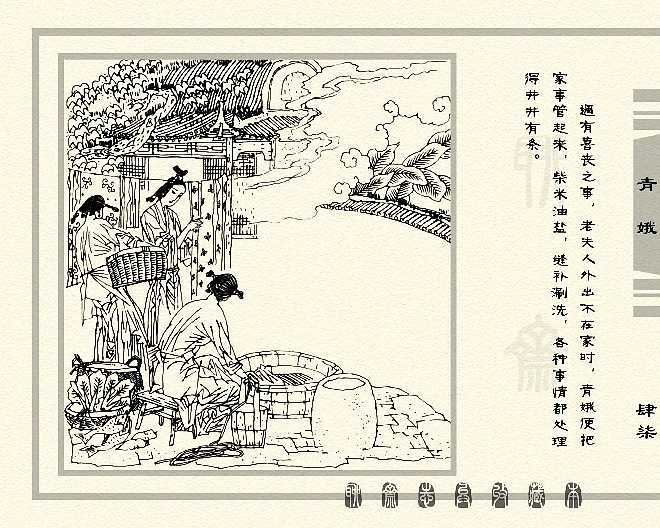 遇有喜丧之事，老夫人外出不在家时，青娥便把
家事管起来，柴米油盐，缝补涮洗，各种事情都处理
得井井有条。
青娥
肆柒
聊斋志异收藏本